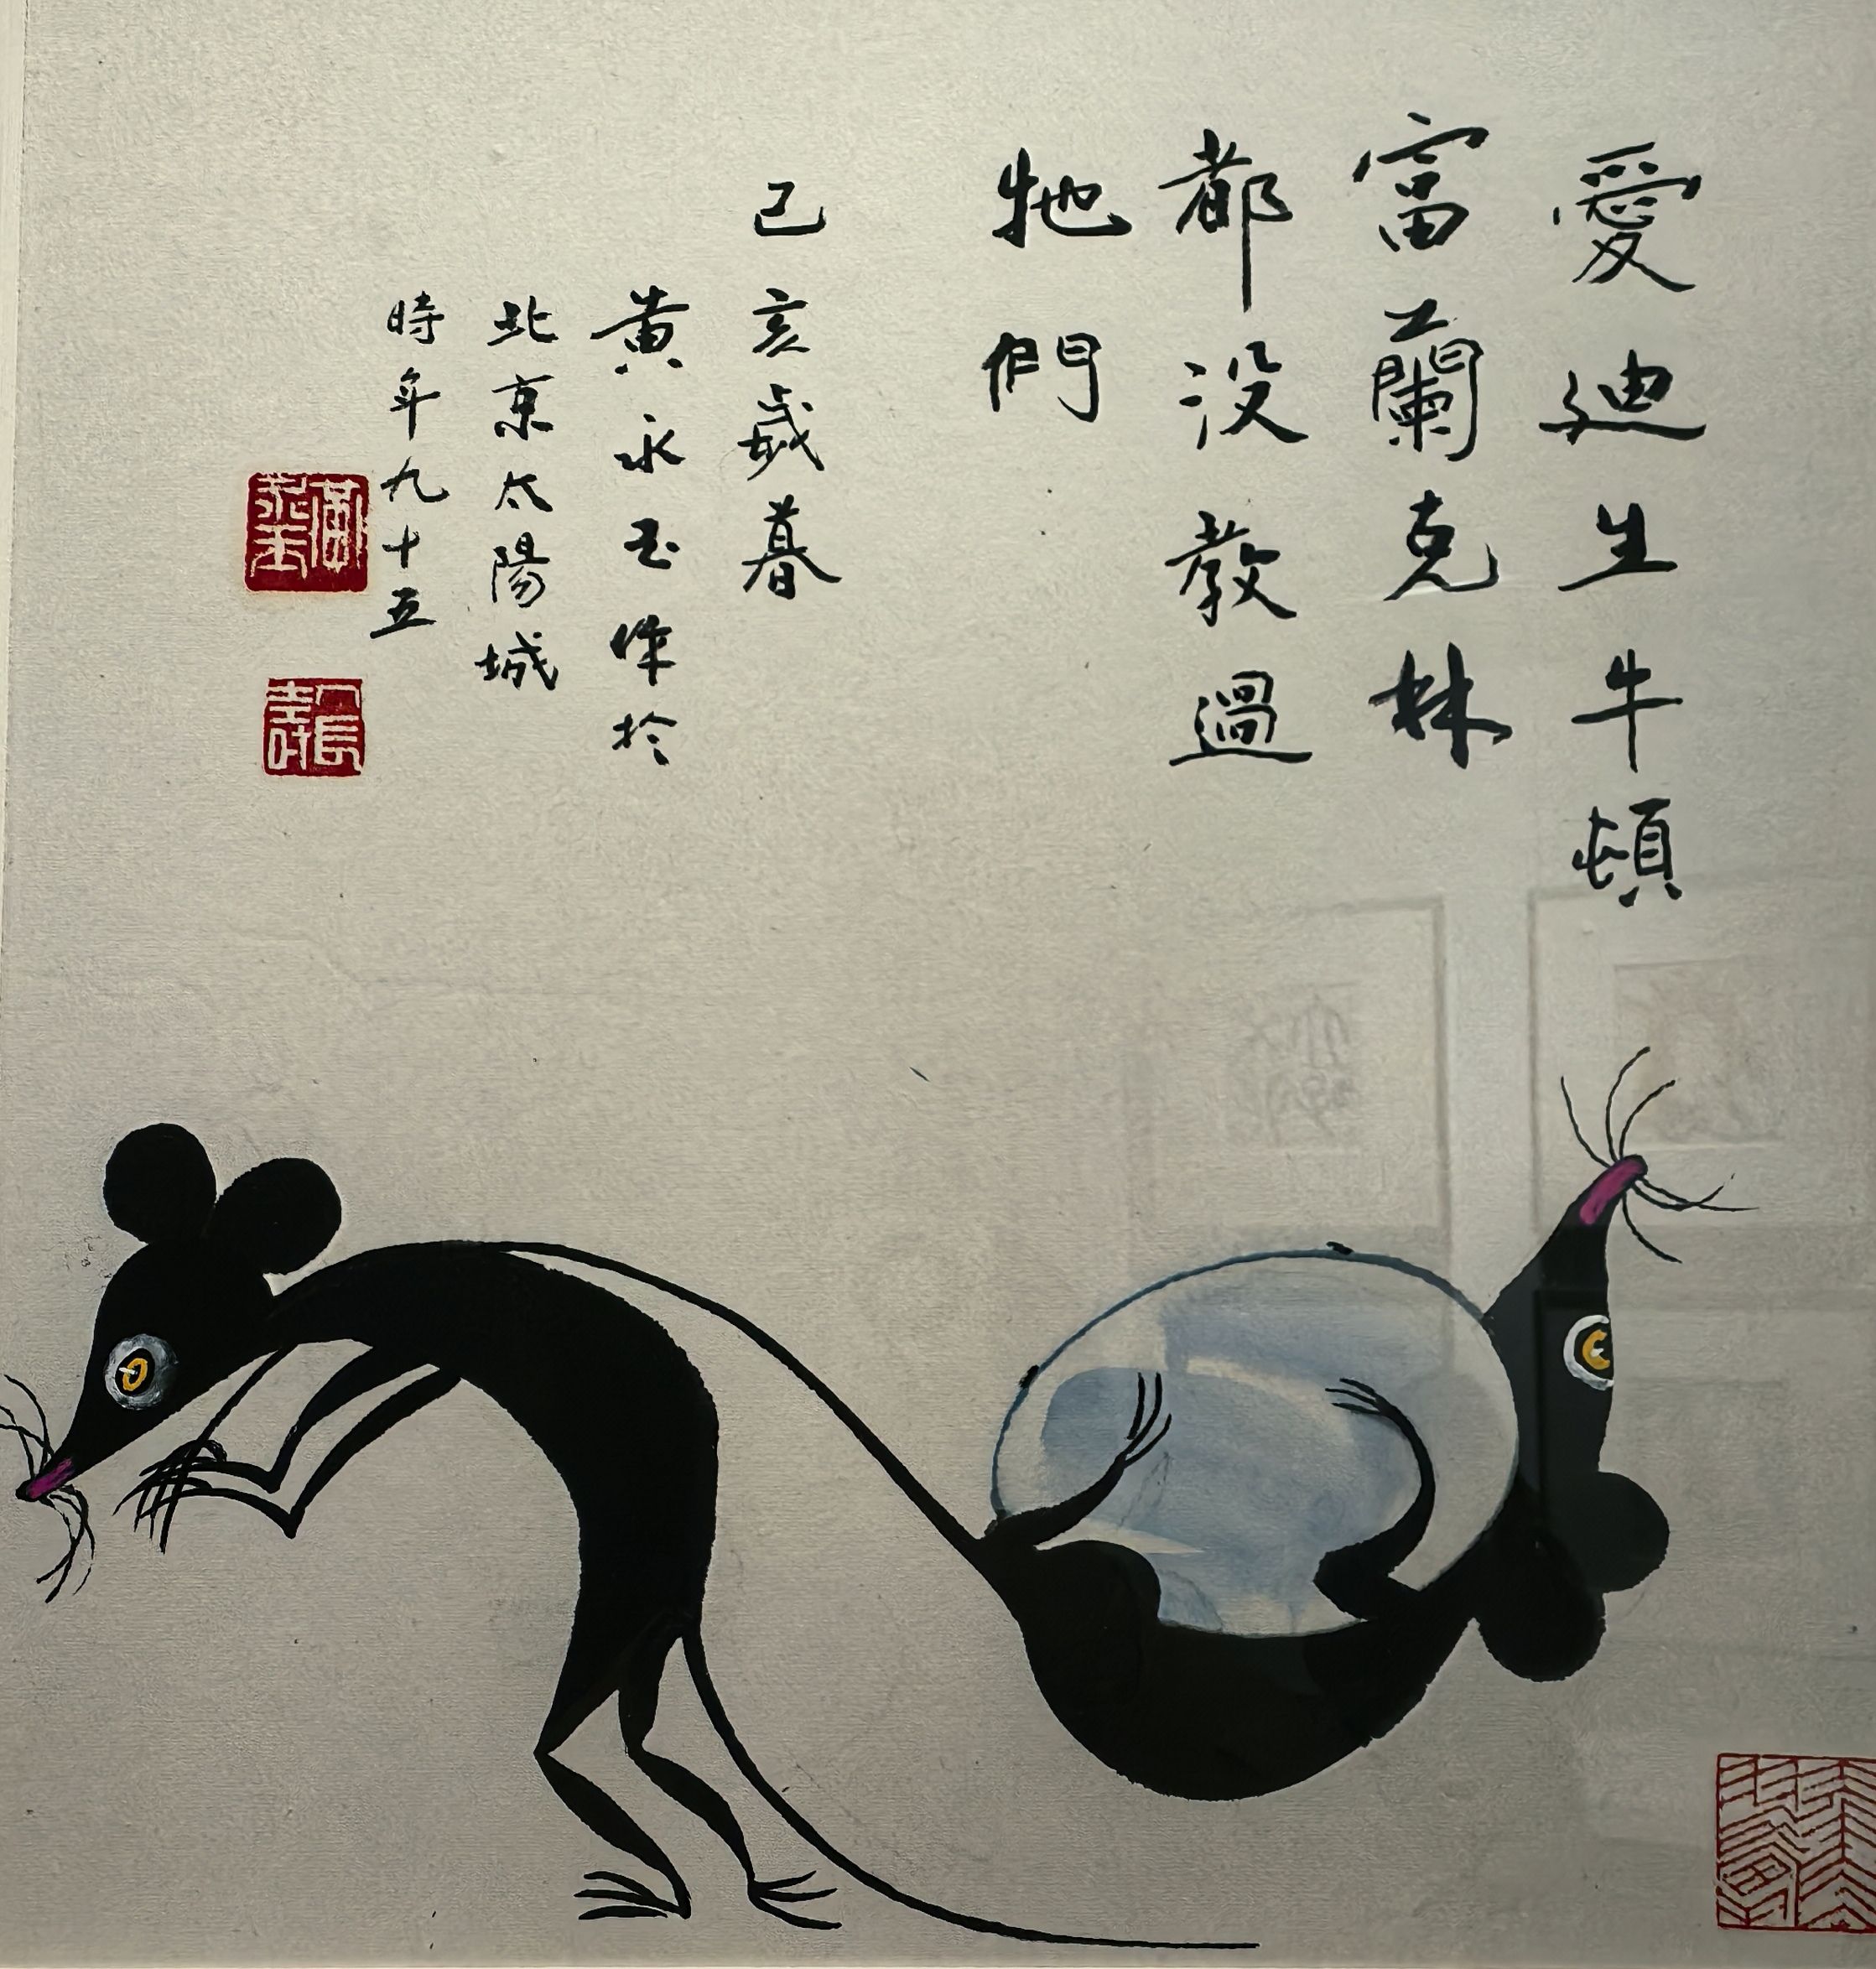 愛迪生牛頓
富蘭克林
都没教過
牠們
己亥歲暮
黄永玉作於
北京太陽城
時年九十五
黃永玉